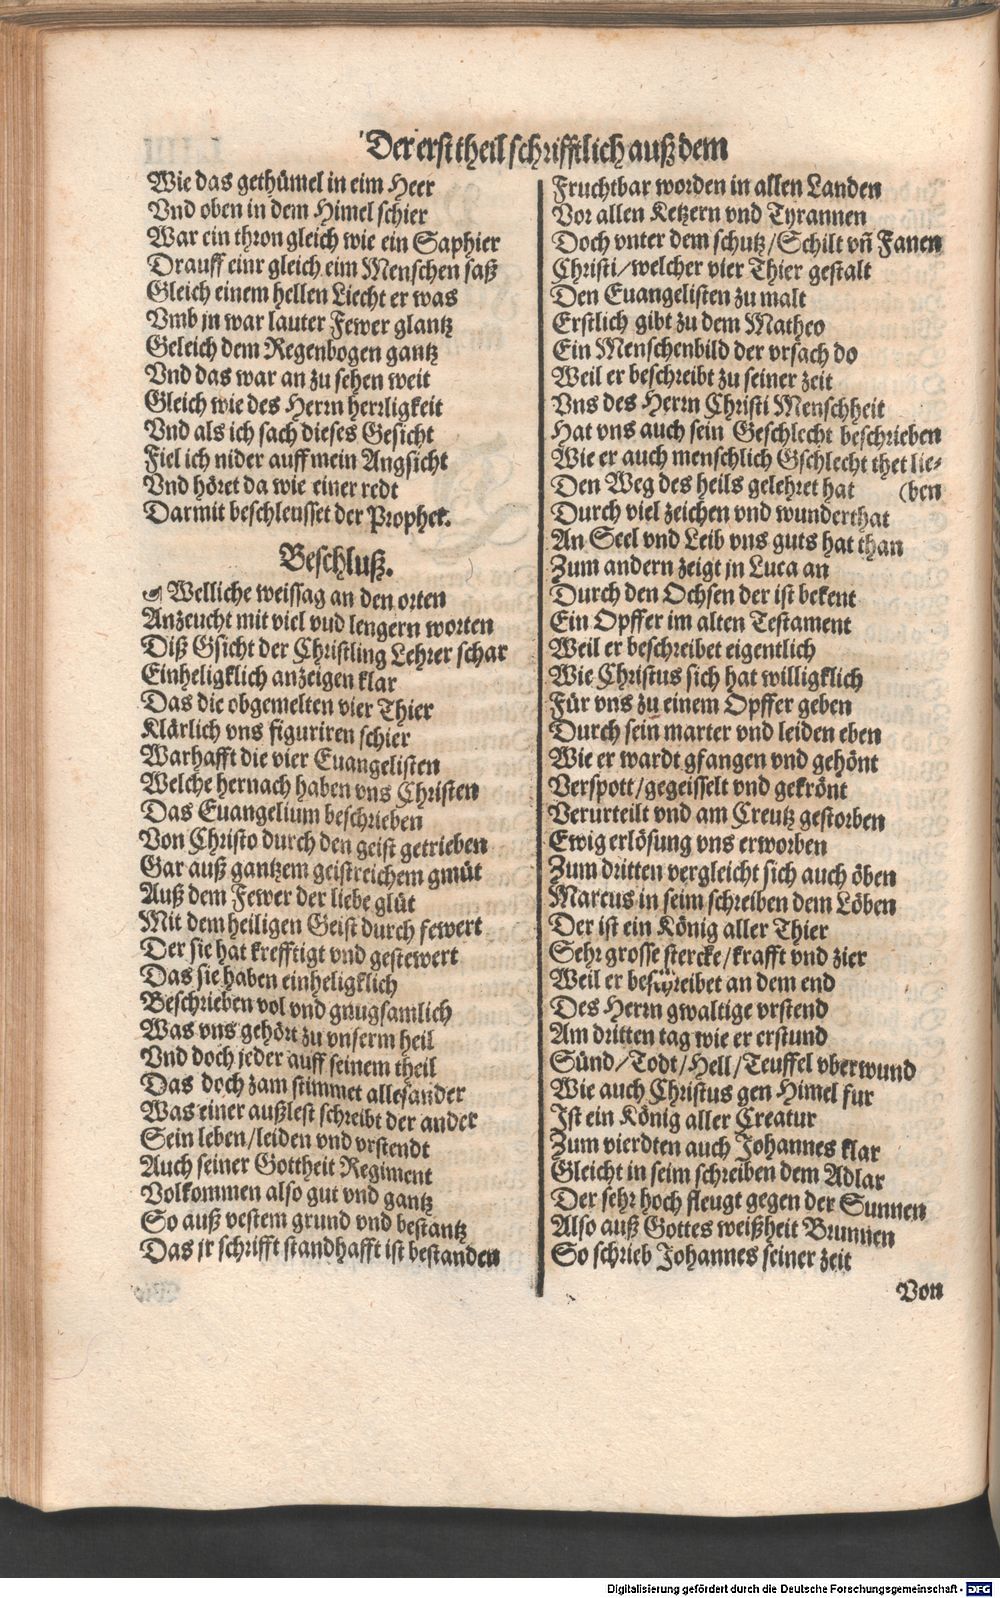 Der erst theil schrifftlich auß dem
Wie das gethümel in eim Heer
Vnd oben in dem Himel schier
War ein thron gleich wie ein Saphier
Drauff einr gleich eim Menschen saß
Gleich einem hellen Liecht er was
Vmb jn war lauter Fewer glantz
Geleich dem Regenbogen gantz
Vnd das war an zu sehen weit
Gleich wie des Herrn herrligkeit
Vnd als ich sach dieses Gesicht
Fiel ich nider auff mein Angsicht
Vnd höret da wie einer redt
Darmit beschleusset der Prophet.
Beschluß.
☙ Welliche weissag an den orten
Anzeucht mit viel vud lengern worten
Diß Gsicht der Christling Lehrer schar
Einheligklich anzeigen klar
Das die obgemelten vier Thier
Klärlich vns figuriren schier
Warhafft die vier Euangelisten
Welche hernach haben vns Christen
Das Euangelium beschrieben
Von Christo durch den geist getrieben
Gar auß gantzem geistreichem gmüt
Auß dem Fewer der liebe glüt
Mit dem heiligen Geist durch fewert
Der sie hat krefftigt vnd gestewert
Das sie haben einheligklich
Beschrieben vol vnd gnugsamlich
Was vns gehört zu vnserm heil
Vnd doch jeder auff seinem theil
Das doch zam stimmet allesander
Was einer außlest schreibt der ander
Sein leben/leiden vnd vrstendt
Auch seiner Gottheit Regiment
Volkommen also gut vnd gantz
So auß vestem grund vnd bestantz
Das jr schrifft standhafft ist bestanden
Fruchtbar worden in allen Landen
Vor allen Ketzern vnd Tyrannen
Doch vnter dem schutz/Schilt vñ Fanen
Christi/welcher vier Thier gestalt
Den Euangelisten zu malt
Erstlich gibt zu dem Matheo
Ein Menschenbild der vrsach do
Weil er beschreibt zu seiner zeit
Vns des Herrn Christi Menschheit
Hat vns auch sein Geschlecht beschrieben
Wie er auch menschlich Gschlecht thet lie-
Den Weg des heils gelehret hat (ben
Durch viel zeichen vnd wunderthat
An Seel vnd Leib vns guts hat than
Zum andern zeigt jn Luca an
Durch den Ochsen der ist bekent
Ein Opffer im alten Testament
Weil er beschreibet eigentlich
Wie Christus sich hat willigklich
Für vns zu einem Opffer geben
Durch sein marter vnd leiden eben
Wie er wardt gfangen vnd gehönt
Verspott/gegeisselt vnd gekrönt
Verurteilt vnd am Creutz gestorben
Ewig erlösung vns erworben
Zum dritten vergleicht sich auch öben
Marcus in seim schreiben dem Löben
Der ist ein König aller Thier
Sehr grosse stercke/krafft vnd zier
Weil er beschreibet an dem end
Des Herrn gwaltige vrstend
Am dritten tag wie er erstund
Sünd/Todt/Hell/Teuffel vberwund
Wie auch Christus gen Himel fur
Ist ein König aller Creatur
Zum vierdten auch Johannes klar
Gleicht in seim schreiben dem Adlar
Der sehr hoch fleugt gegen der Sunnen
Also auß Gottes weißheit Brunnen
So schrieb Johannes seiner zeit
Von
Digitalisierung gefördert durch die Deutsche Forschungsgemeinschaft - DFG